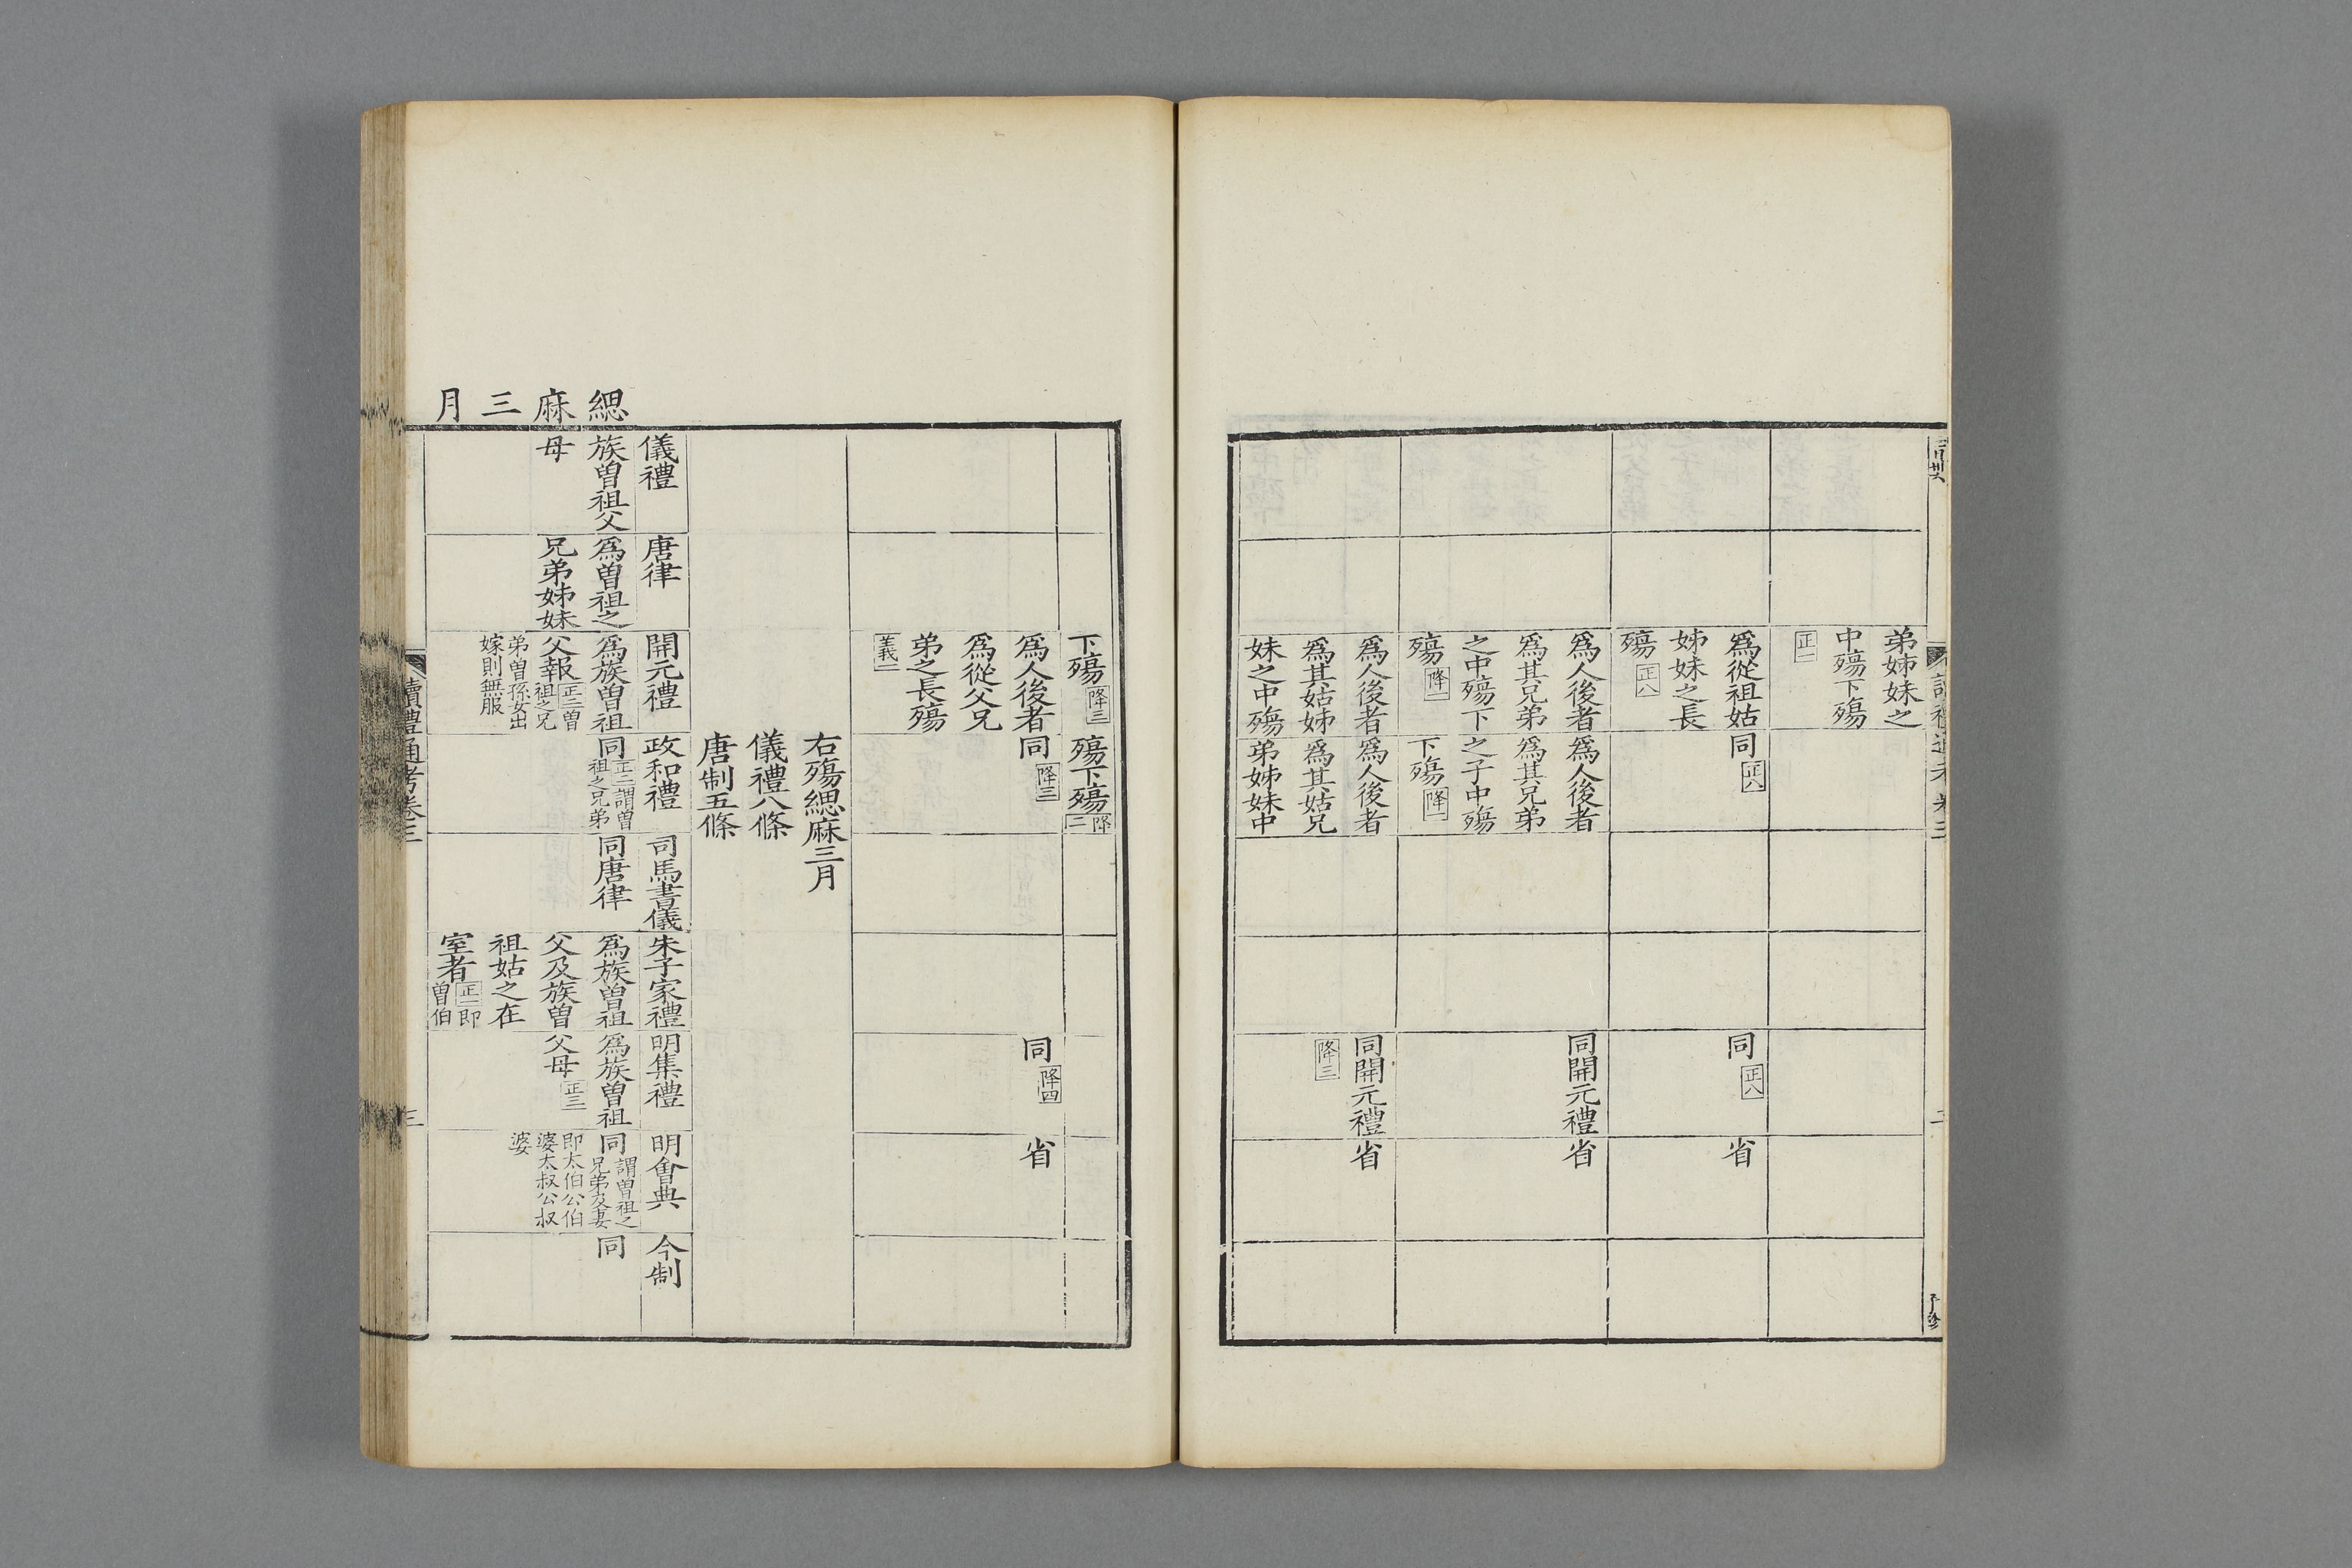 弟姊妹之
中殤下殤
正一
爲從祖姑
姊妹之長
殤正八
同正八
同正八
省
爲人後者
爲其兄弟
之中殤下
殤降二
爲人後者
爲其兄弟
之子中殤
下殤降一
同開元禮
省
爲人後者
爲其姑姊
妹之中殤
爲人後者
爲其姑兄
弟姊妹中
同開元禮
降三
省
下殤降三
殤下殤降二
爲人後者
爲從父兄
弟之長殤
義一
同降三
同降四
省
右殤緦麻三月
儀禮八條
唐制五條
緦麻三月
儀禮
唐律
開元禮
政和禮
司馬書儀
朱子家禮
明集禮
明會典
今制
族曽祖父
母
爲曽祖之
兄弟姊妹
爲族曽祖
父報正三曽
祖之兄
弟曽孫女出
嫁則無服
同正二謂曽
祖之兄弟
同唐律
爲族曽祖
父及族曽
祖姑之在
室者正一即
曽伯
爲族曽祖
父母正三
同謂曽祖之
兄弟及妻
即太伯公伯
婆太叔公叔
婆
同
讀禮通考卷三
三